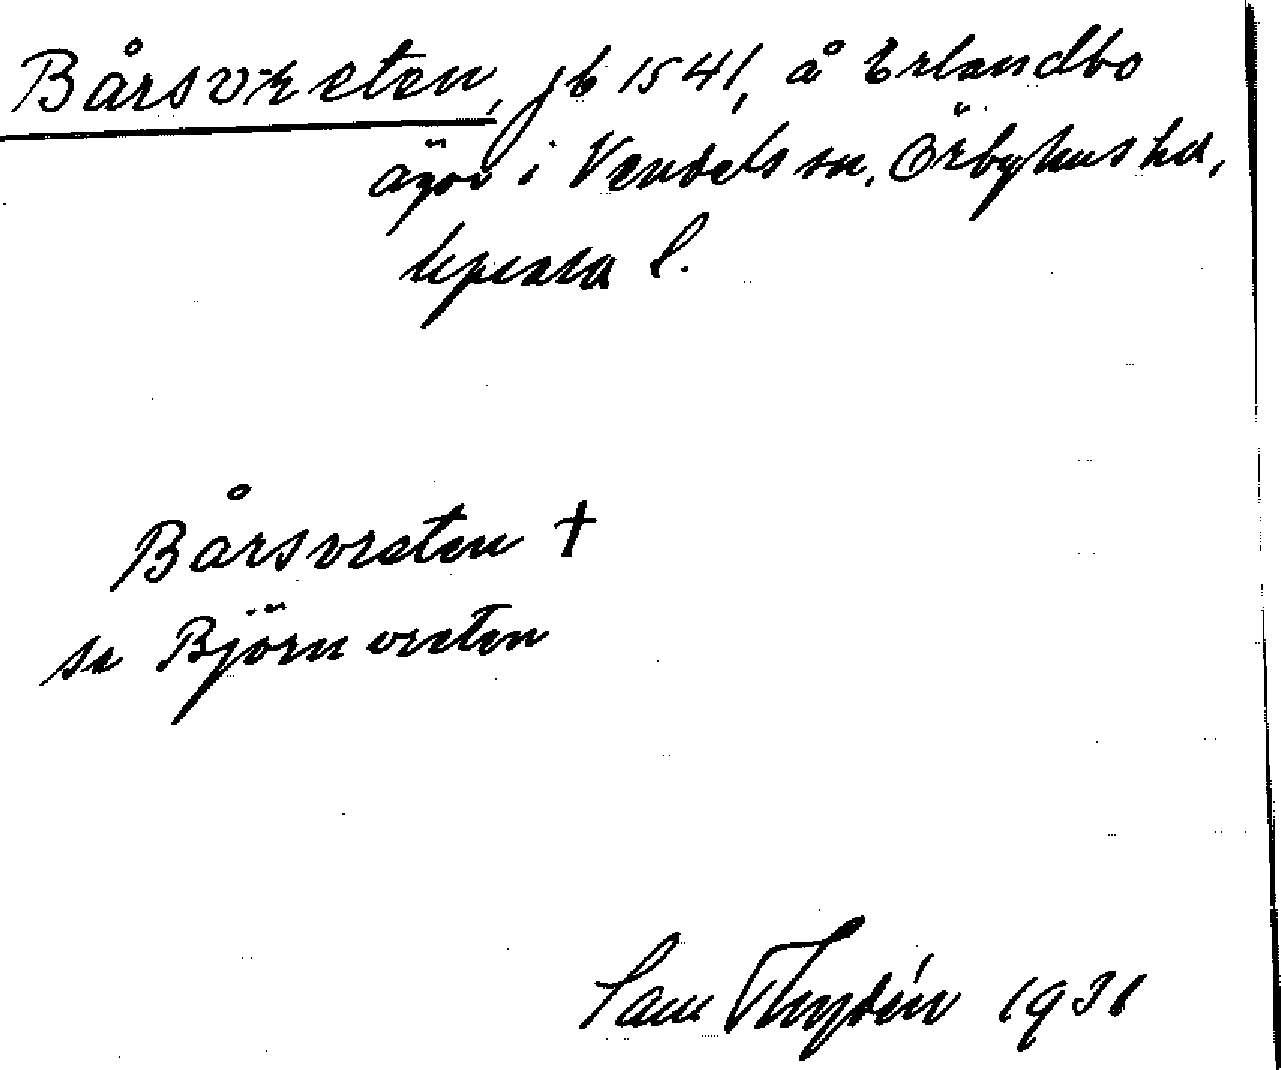 Bårsvreten, jb 1541, å Erlandbo
ägor i Vendels sn. Örbyhus hd,
Upsala l.
Bårsvreten †
se Björnvreten
Sam Thydén 1931